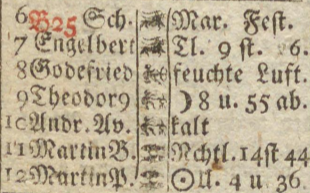 6 B25 Sch. Mar. Fest.
7 Engelbert Tl. 9 st. 26.
8 Godefried feuchte Luft.
9 Theodor9 ☽ 8 u. 55 ab.
10 Andr. Av. kalt
11 Martin B. Nchtl. 14st 44
12 Martin P. ☉ll. 4 u. 36.